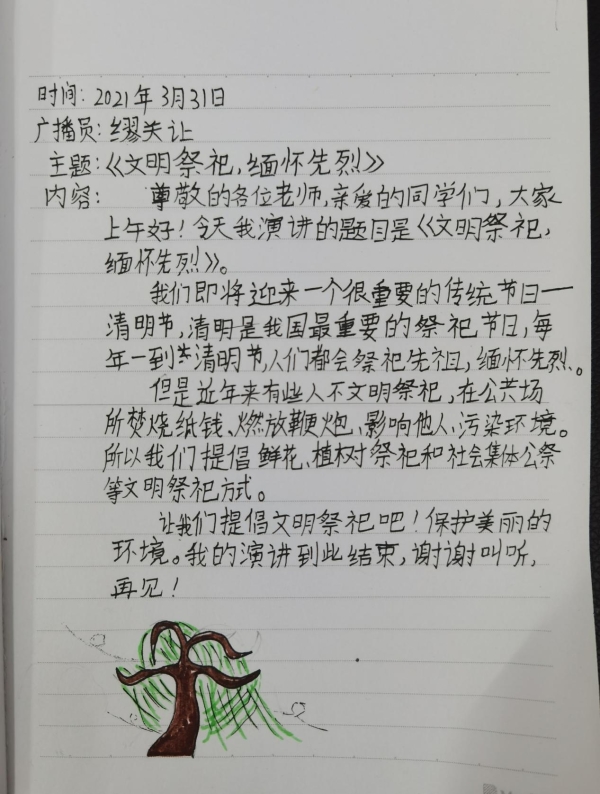 时间: 2021年3月31日
广播员: 缪关让
主题:《文明祭祀,缅怀先烈》
内容: 尊敬的各位老师,亲爱的同学们,大家
上午好!今天我演讲的题目是《文明祭祀,
缅怀先烈》。
我们即将迎来一个很重要的传统节日——
清明节,清明是我国最重要的祭祀节日,每
年一到清明节,人们都会祭祀先祖,缅怀先烈。
但是近年来有些人不文明祭祀,在公共场
所焚烧纸钱、燃放鞭炮,影响他人,污染环境。
所以我们提倡鲜花、植树祭祀和社会集体公祭
等文明祭祀方式。
让我们提倡文明祭祀吧!保护美丽的
环境。我的演讲到此结束,谢谢叫听,
再见!